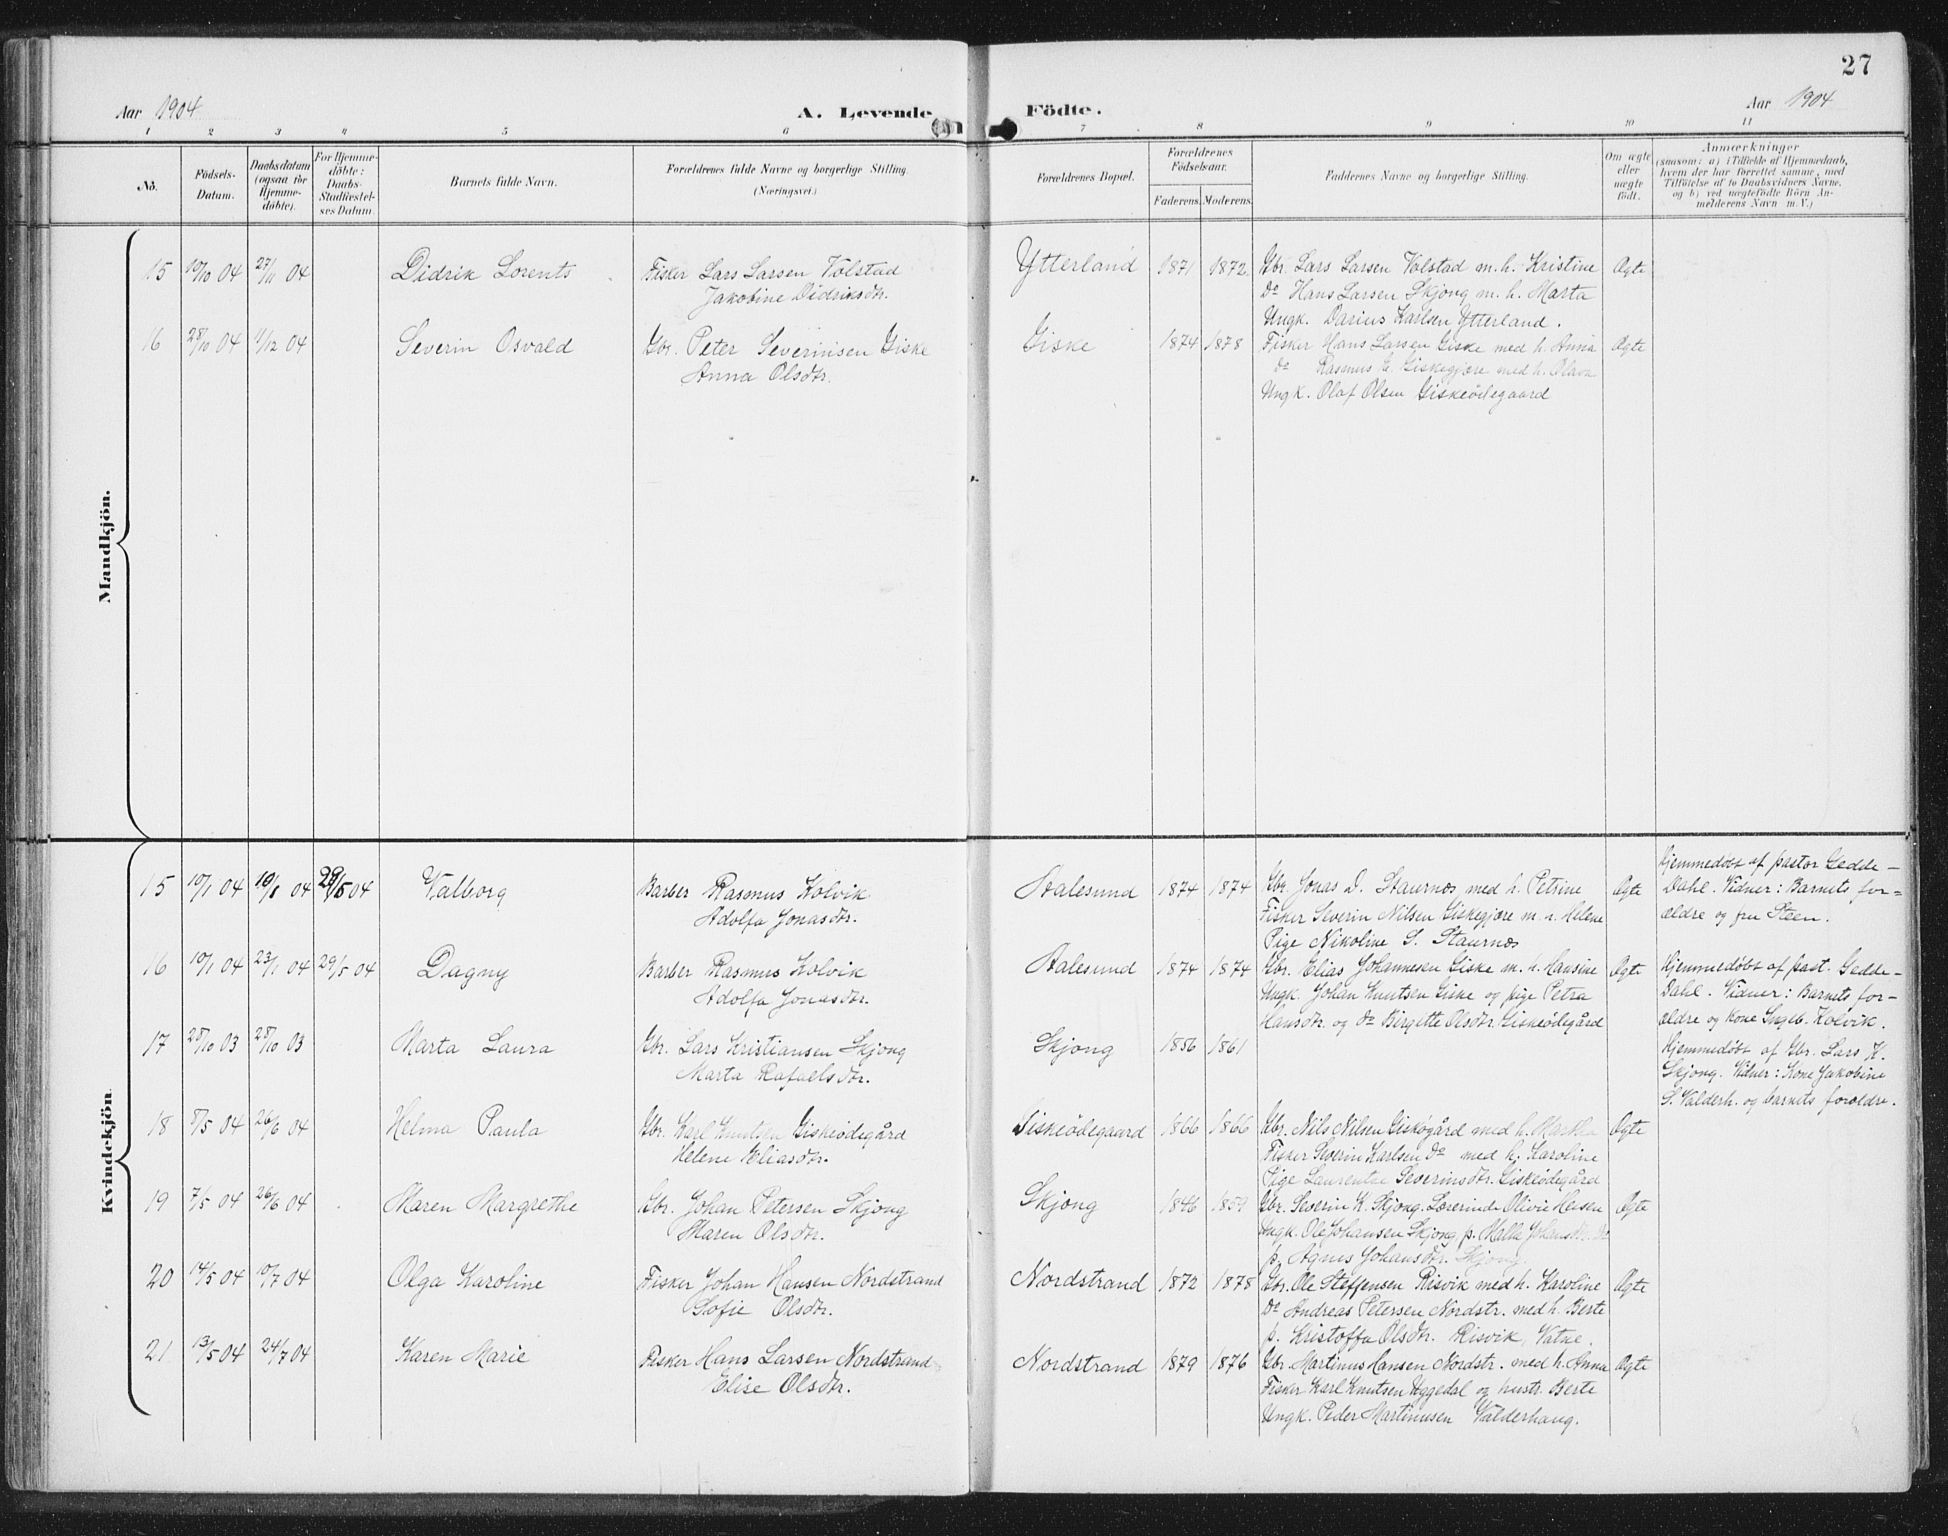 27
Aar 1904
A. Levende
Födte.
Aar 1904
1 2 3 4 5 6 7 8 9 10 11
No.
Födsels-
Datum.
Daabsdatum
(ogsaa for
Hjemme-
døbte).
For Hjemme-
døbte:
Daabs-
Stadfæstel-
ses Datum.
Barnets fulde Navn.
Forældrenes fulde Navne og borgerlige Stilling.
(Næringsvei.)
Forældrenes Bopæl.
Forældrenes
Födselsaar.
Faderens. Moderens.
Faddernes Navne og borgerlige Stilling.
Om ægte
eller
uægte
født.
Anmærkninger
(saasom: a) i Tilfælde af Hjemmedaab,
hvem der har forrettet samme, med
Tilføielse af to Daabsvidners Navne,
og b) ved uægtefødte Börn An-
melderens Navn m. V.)
Mandkjön.
15 10/10 04 27/11 04 Didrik Lorents Fisker Lars Larsen Volstad Ytterland 1871 1872 Gbr. Lars Larsen Volstad m. h. Kristine Ægte
Jakobine Didriksdtr. Do Hans Larsen Skjong m. h. Marta
Ungk. Darius Karlsen Ytterland.
16 28/10 04 11/12 04 Severin Osvald Gbr. Peter Severinsen Giske Giske 1874 1878 Fisker Hans Larsen Giske med h. Anna Ægte
Anna Olsdtr. do Rasmus E. Giskegjære med h. Olava
Ungk. Olaf Olsen Giskeødegaard
Kvindekjön.
15 10/1 04 04 29/5 04 Valborg Barber Rasmus Kolvik Aalesund 1874 1874 Gbr. Jonas D. Staurnæs med h. Petrine Ægte Hjemmedøbt af pastor Gedde-
Adolfa Jonasdtr. Fisker Severin Nilsen Giskegjære m. h. Helene Dahl. Vidner: Barnets for-
Pige Nikoline S. Staurnæs ældre og fru Steen.
16 10/1 04 23/1 04 29/5 04 Dagny Barber Rasmus Kolvik Aalesund 1874 1874 Gbr. Elias Johannesen Giske m. h. Hansine Ægte Hjemmedøbt af past. Gedde-
Adolfa Jonasdtr. Ungk. Johan Knutsen Giske og pige Petra Dahl. Vidner: Barnets for-
Hansdtr. og do Birgitte Olsdtr. Giskeødegård ældre og kone Ingeb. Kolvik.
17 28/10 03 28/10 03 Marta Laura Gbr. Lars Kristiansen Skjong Skjong 1856 1861 Hjemmedøbt af Gbr. Lars K.
Marta Rafaelsdtr. Skjong. Vidner: Kone Jakobine
S. Valderh. og barnets forældre.
18 8/5 04 26/6 04 Helma Paula Gbr. Karl Knutsen Giskeødegård Giskeødegaard 1866 1866 Gbr. Nils Nilsen Giskøgård med h. Martha Ægte
Helene Eliasdtr. Fisker Severin Karlsen do med h. Karoline
Pige Laurentse Severinsdtr. Giskeødegård
19 7/5 04 26/6 04 Maren Margrethe Gbr. Johan Petersen Skjong Skjong 1846 1859 Gbr. Severin K. Skjong. Lærerinde Olivie Ægte
Maren Olsdtr. Ungk. Ole Johansen Skjong, p. Malla Johansdtr. Do
p. Agnes Johansdtr. Skjong.
20 14/5 04 10/7 04 Olga Karoline Fisker Johan Hansen Nordstrand Nordstrand 1872 1878 Gbr. Ole Steffensen Risvik med h. Karoline Ægte
Sofie Olsdtr. Do Andreas Petersen Nordstr. med h. Berte
p. Kristoffa Olsdtr. Risvik, Vatne.
21 13/5 04 24/7 04 Karen Marie Fisker Hans Larsen Nordstrand Nordstrand 1879 1876 Gbr. Martinus Hansen Nordstr. med h. Anna Ægte
Elise Olsdtr. Fisker Karl Knutsen og hustr. Berte
Ungk. Peder Martinusen Valderhaug.